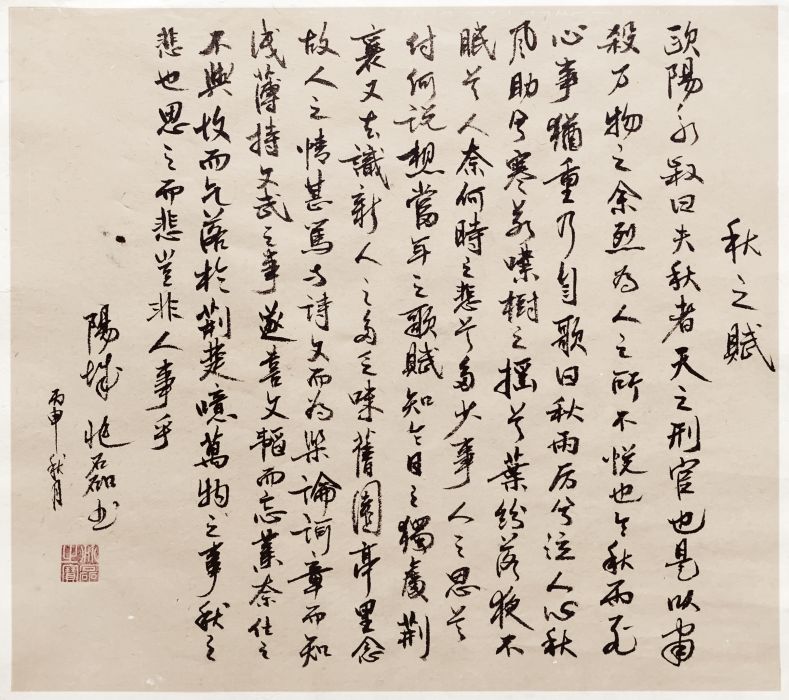 秋之賦
歐陽永叔曰夫秋者天之刑官也是以肅
殺万物之余烈為人之所不悅也今秋雨至
心事猶重乃自歌曰秋雨厉兮泣人心秋
风助兮寒蒸噤樹之摇兮葉紛落狹不
眠兮人奈何時之悲兮多少事人之思兮
付何說想當年之歌賦知今日之獨處荆
襄又去識新人之多乏味舊園亭里念
故人之情甚篤与詩文而為樂論詞章而知
浅薄持文武之事遂喜文韜而忘業奈仕之
不興故而乞落於荆楚噫萬物之事秋之
悲也思之而悲豈非人事乎
陽城 石磊书
丙申秋月